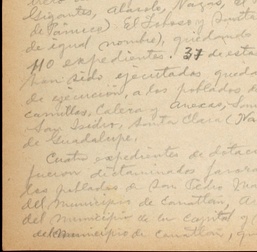 Gigantes, Alarole, Navajas, El
de Panuco) El Toboso y Santa
de igual nombre), quedando
110 expedientes. 37 de estas
han sido ejecutadas, queda
de ejecución, a los poblados
Carrillos, Calera y Anexas, San
San Isidro, Santa Clara (Na
de Guadalupe.
Cuatro expedientes de dotac
fueron dictaminados favora
las poblados de San Pedro Ma
del Municipio de Canatlán, A
del Municipio de la Capital y
del Municipio de Canatlán, qu